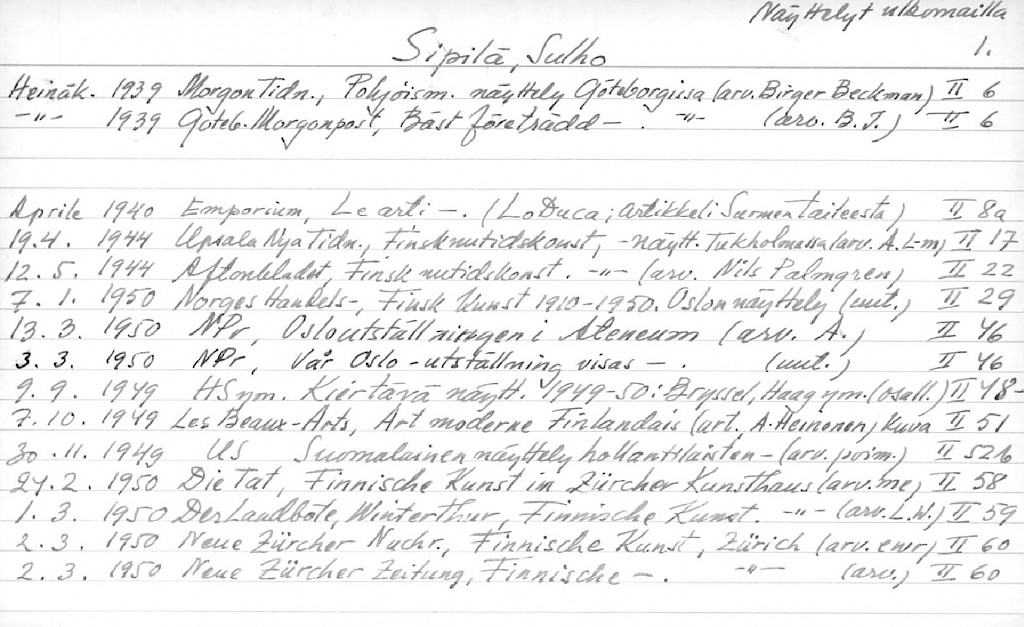 Näyttelyt ulkomailla
1.
Sipilä, Sulho
Heinäk. 1939 MorgonTidn., Pohjoism. näyttely Göteborgissa (arv. Birger Beckman) II 6
-"- 1939 Göteb. Morgonpost, Bäst företrädd - . -"- (arv. B.J.) II 6
Aprile 1940 Emporium, Le arti -. (LoDuca; artikkeli Suomen taiteesta) II 8a
19.4. 1944 Upsala Nya Tidn., Finsk nutidskonst, -näytt. Tukholmassa (arv. A.L-m) II 17
12.5. 1944 Aftonbladet, Finsk nutidskonst. -"- (arv. Nils Palmgren) II 22
7.1. 1950 Norges Handels-, Finsk Kunst 1910-1950. Oslon näyttely (uut.) II 29
13.3. 1950 NPr, Osloutställningen i Ateneum (arv. A.) II 46
3.3. 1950 NPr, Vår Oslo-utställning visas - . (uut.) II 46
9.9. 1949 HS ym. Kiertävä näytt. 1949-50: Bryssel, Haag ym. (osall.) II 48-
7.10. 1949 Les Beaux-Arts, Art moderne Finlandais (art. A. Heinonen) kuva II 51
30.11. 1949 US Suomalainen näyttely hollantilaisten - (arv. poim.) II 52b
27.2. 1950 Die Tat, Finnische Kunst im Zürcher Kunsthaus (arv. me) II 58
1.3. 1950 Der Landbote, Winterthur, Finnische Kunst. -"- (arv. L.W.) II 59
2.3. 1950 Neue Zürcher Nachr., Finnische Kunst, Zürich (arv. ) II 60
2.3. 1950 Neue Zürcher Zeitung, Finnische - . -"- (arv.) II 60